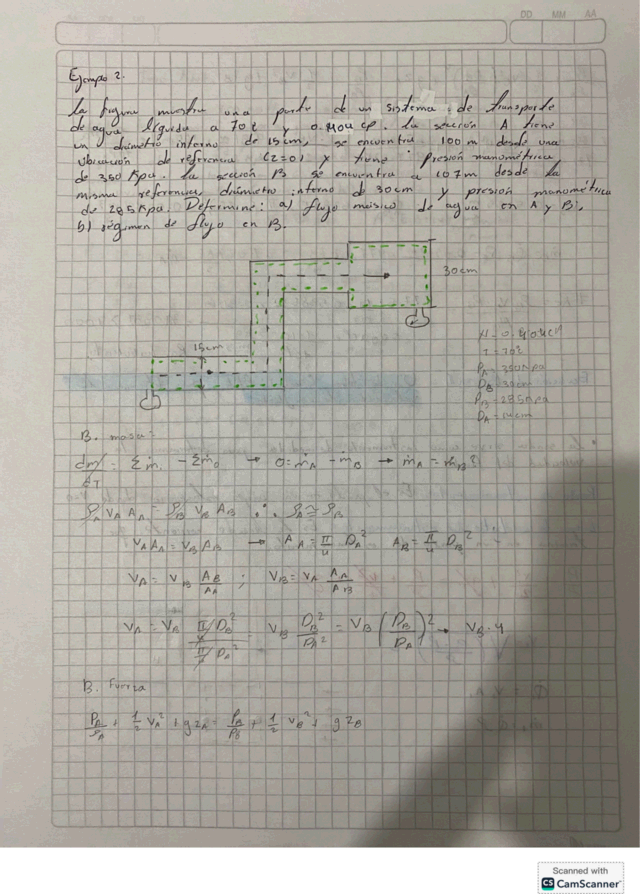 DD MM AA
Ejemplo 2.
La figura muestra una parte de un sistema de transporte
de agua líquida a 70°C y 0.4104 cp. La sección A tiene
un diámetro interno de 15cm, se encuentra 100 m desde una
ubicación de referencia (z=0) y tiene presión manométrica
de 350 Kpa. La sección B se encuentra a 107m desde la
misma referencia, diámetro interno de 30cm y presión manométrica
de 285Kpa. Determine: a) flujo másico de agua en A y B;
b) régimen de flujo en B.
30cm
15cm
T = 70°C
PA = 350Kpa
DB = 30cm
PB = 285Kpa
B. masa:
dm/dT = Σṁi - Σṁo → 0 = ṁA - ṁB → ṁA = ṁB
ρA VA AA = ρB VB AB ∴ ρA ≅ ρB
VA AA = VB AB → AA = π/4 DA² AB = π/4 DB²
VA = VB AB/AA ; VB = VA AA/AB
VA = VB (π/4 DB²)/(π/4 DA²) VB DB²/DA² = VB (DB/DA)² → VB · 4
B. Fuerza
PA/ρA + 1/2 VA² + g zA = PB/ρB + 1/2 VB² + g zB
Scanned with
CS CamScanner